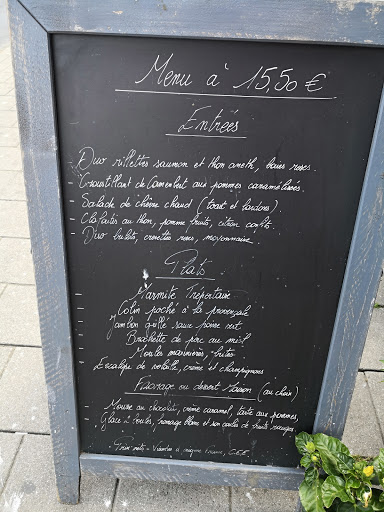 Menu à 15,50 €
Entrées
- Duo rillettes saumon et thon aneth, baies roses.
- Croustillant de Camembert aux pommes caramélisées.
- Salade de chèvre chaud (toast et lardons).
- Clafoutis au thon, pomme fruits, citron confit.
- Duo bulots, crevettes roses, mayonnaise
Plats
- Marmite Tréportaise
- Colin poché à la provençale
- Jambon grillé sauce poivre vert
- Brochette de porc au miel
- Moules marinières-frites
- Escalope de volaille, crème et champignons
Fromage ou dessert Maison (au choix)
- Mousse au chocolat, crème caramel, tarte aux pommes,
- Glace 2 boules, fromage blanc et son coulis de fruits rouges
Prix nets - Viandes d'origine France, C.E.E.